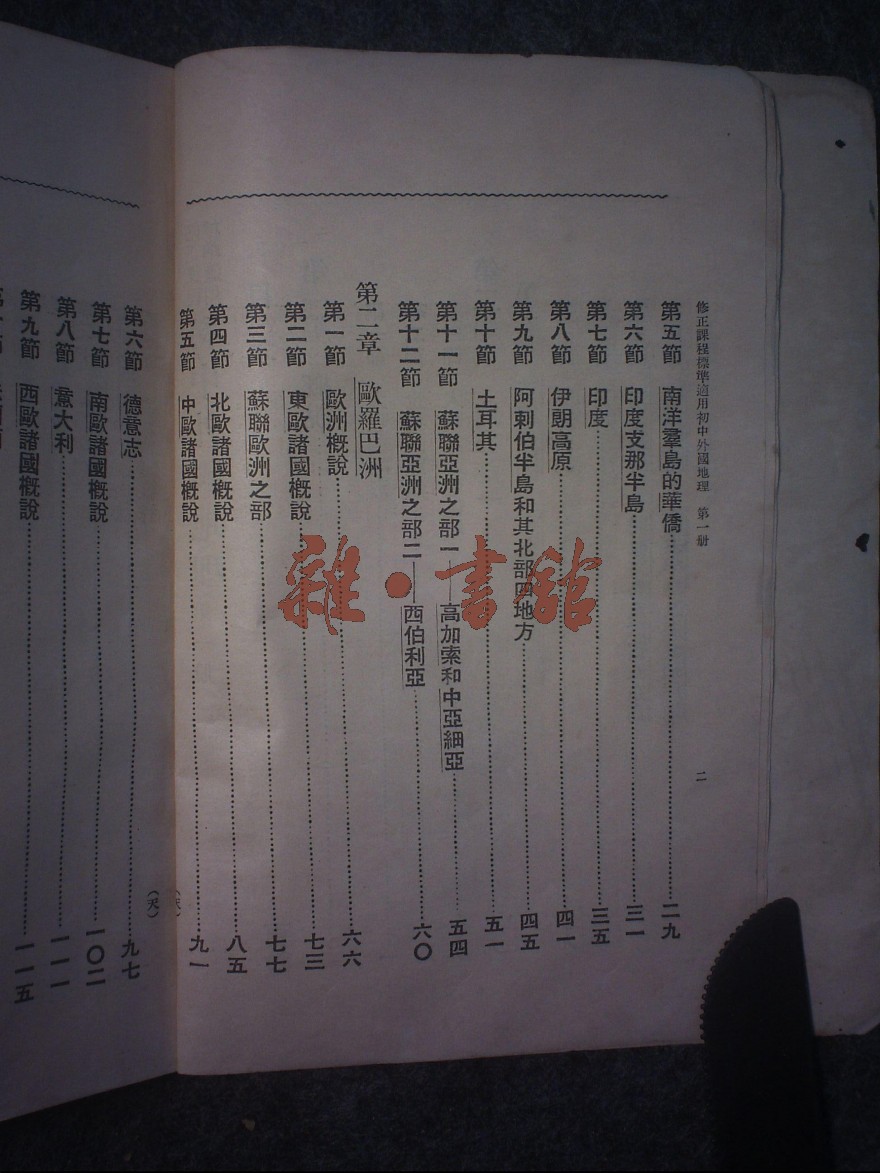 修正課程標準適用初中外國地理　第一册
二
第五節　南洋羣島的華僑……二九
第六節　印度支那半島……三一
第七節　印度……三五
第八節　伊朗高原……四一
第九節　阿剌伯半島和其北部四地方……四五
第十節　土耳其……五一
第十一節　蘇聯亞洲之部一——高加索和中亞細亞……五四
第十二節　蘇聯亞洲之部二——西伯利亞……六〇
第二章　歐羅巴洲
第一節　歐洲概說……六六
第二節　東歐諸國概說……七三
第三節　蘇聯歐洲之部……七七
第四節　北歐諸國概說……八五
第五節　中歐諸國概說……九一
第六節　德意志……九七
第七節　南歐諸國概說……一〇二
第八節　意大利……一一一
第九節　西歐諸國概說……一一五
雜·書館